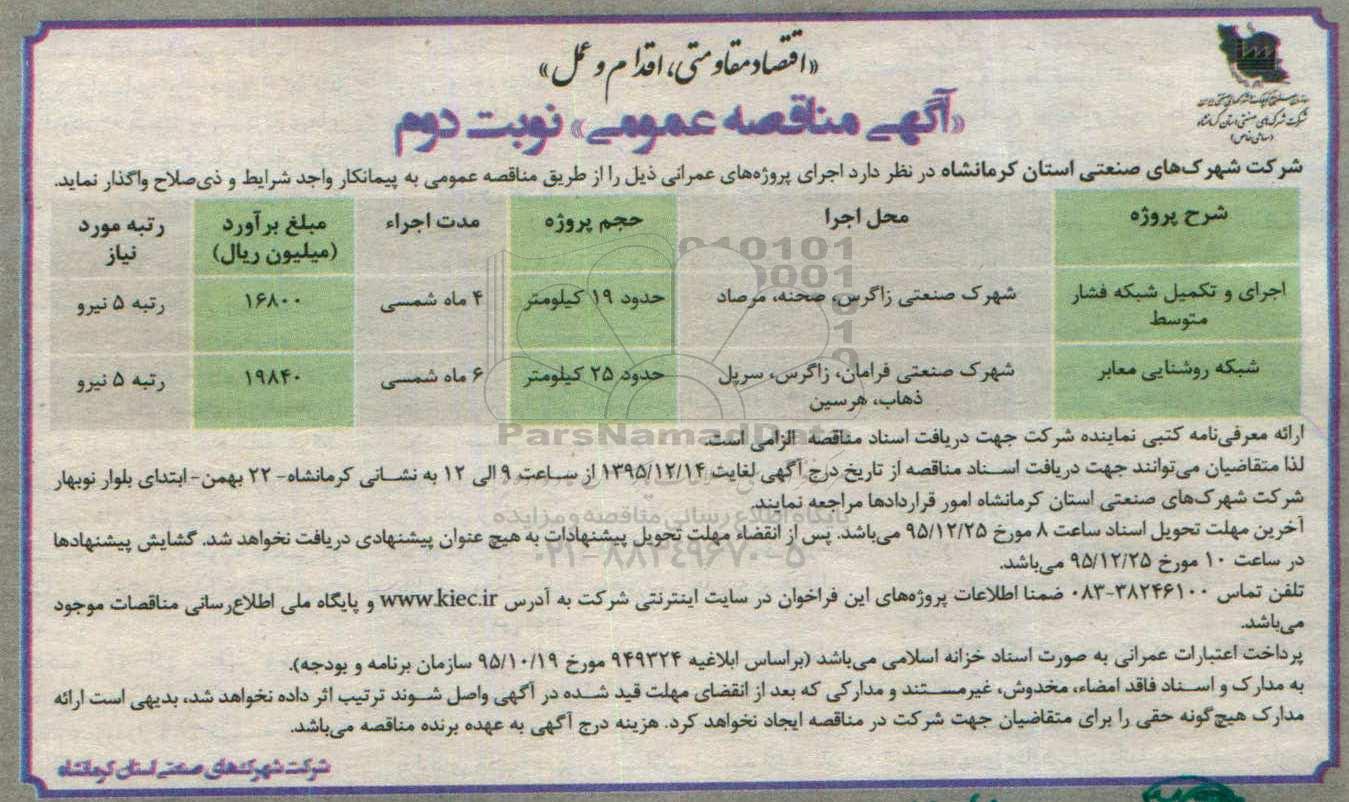 «اقتصاد مقاومتی، اقدام و عمل»
شرکت شهرک‌های صنعتی استان کرمانشاه
(سهامی خاص)
«آگهی مناقصه عمومی» نوبت دوم
شرکت شهرک‌های صنعتی استان کرمانشاه در نظر دارد اجرای پروژه‌های عمرانی ذیل را از طریق مناقصه عمومی به پیمانکار واجد شرایط و ذی‌صلاح واگذار نماید.
شرح پروژه محل اجرا حجم پروژه مدت اجراء مبلغ برآورد (میلیون ریال) رتبه مورد نیاز
اجرای و تکمیل شبکه فشار متوسط شهرک صنعتی زاگرس، صحنه، مرصاد حدود ۱۹ کیلومتر ۴ ماه شمسی ۱۶۸۰۰ رتبه ۵ نیرو
شبکه روشنایی معابر شهرک صنعتی فرامان، زاگرس، سرپل ذهاب، هرسین حدود ۲۵ کیلومتر ۶ ماه شمسی ۱۹۸۴۰ رتبه ۵ نیرو
ParsNamadData
ارائه معرفی‌نامه کتبی نماینده شرکت جهت دریافت اسناد مناقصه الزامی است.
لذا متقاضیان می‌توانند جهت دریافت اسناد مناقصه از تاریخ درج آگهی لغایت ۱۳۹۵/۱۲/۱۴ از ساعت ۹ الی ۱۲ به نشانی کرمانشاه- ۲۲ بهمن- ابتدای بلوار نوبهار
شرکت شهرک‌های صنعتی استان کرمانشاه امور قراردادها مراجعه نمایند.
پایگاه اطلاع رسانی مناقصه و مزایده
آخرین مهلت تحویل اسناد ساعت ۸ مورخ ۹۵/۱۲/۲۵ می‌باشد. پس از انقضاء مهلت تحویل پیشنهادات به هیچ عنوان پیشنهادی دریافت نخواهد شد. گشایش پیشنهادها
در ساعت ۱۰ مورخ ۹۵/۱۲/۲۵ می‌باشد.
۰۲۱-۸۸۳۴۹۶۷۰-۵
تلفن تماس ۳۸۲۴۶۱۰۰-۰۸۳ ضمنا اطلاعات پروژه‌های این فراخوان در سایت اینترنتی شرکت به آدرس www.kiec.ir و پایگاه ملی اطلاع‌رسانی مناقصات موجود
می‌باشد.
پرداخت اعتبارات عمرانی به صورت اسناد خزانه اسلامی می‌باشد (براساس ابلاغیه ۹۴۹۳۲۴ مورخ ۹۵/۱۰/۱۹ سازمان برنامه و بودجه).
به مدارک و اسناد فاقد امضاء، مخدوش، غیرمستند و مدارکی که بعد از انقضای مهلت قید شده در آگهی واصل شوند ترتیب اثر داده نخواهد شد، بدیهی است ارائه
مدارک هیچ‌گونه حقی را برای متقاضیان جهت شرکت در مناقصه ایجاد نخواهد کرد. هزینه درج آگهی به عهده برنده مناقصه می‌باشد.
شرکت شهرک‌های صنعتی استان کرمانشاه